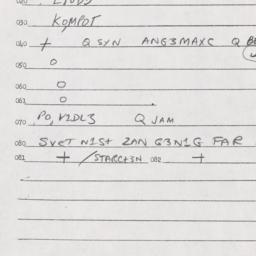 030 KOMPOT
040 + Q SYN ANG3MAXC Q
050 O
060 O
061 O
070 PO, VIDL3 Q JAM
080 SVET N1St ZAN G3N1G FAR
081 + /STARC+3N 082 +